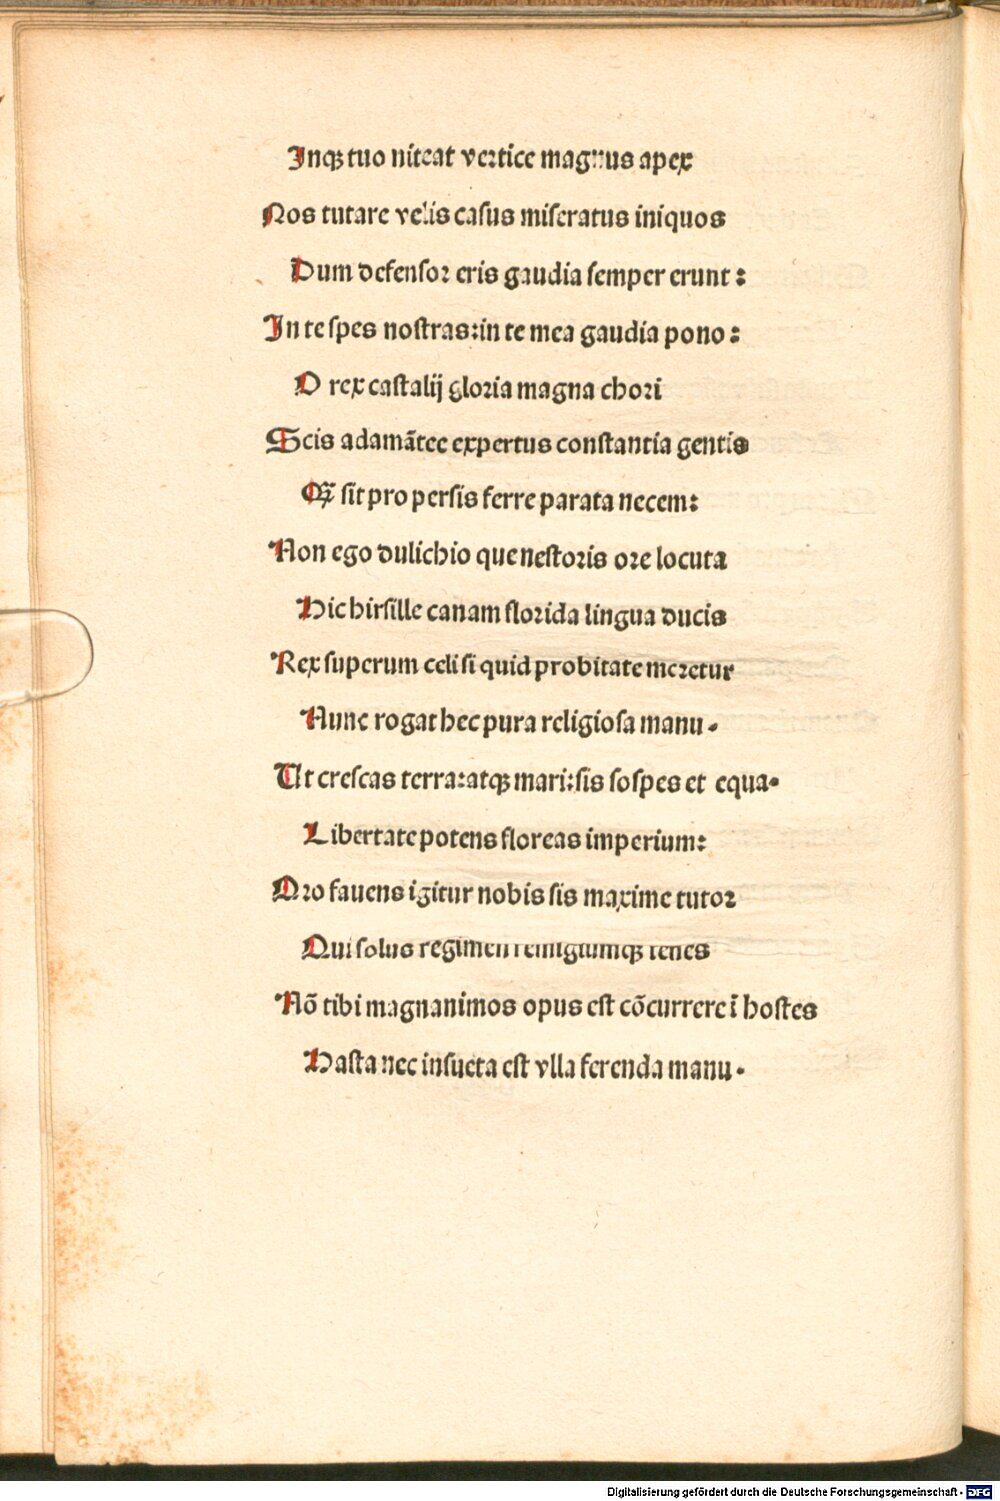 Inqꝫ tuo niteat vertice magnus apex
Nos tutare velis casus miseratus iniquos
Dum defensor eris gaudia semper erunt :
In te spes nostras:in te mea gaudia pono :
O rex castalij gloria magna chori
Scis adamātee expertus constantia gentis
Qꝫ sit pro persis ferre parata necem:
Non ego dulichio que nestoris ore locuta
Hic hirsille canam florida lingua ducis
Rex superum celi si quid probitate meretur
Nunc rogat hec pura religiosa manu .
Ut crescas terra:atqꝫ mari:sis sospes et equa.
Libertate potens floreas imperium:
Oro fauens igitur nobis sis maxime tutor
Qui solus regimen remigiumqꝫ tenes
Nō tibi magnanimos opus est cōcurrere ī hostes
Hasta nec insueta est vlla ferenda manu .
Digitalisierung gefördert durch die Deutsche Forschungsgemeinschaft - DFG